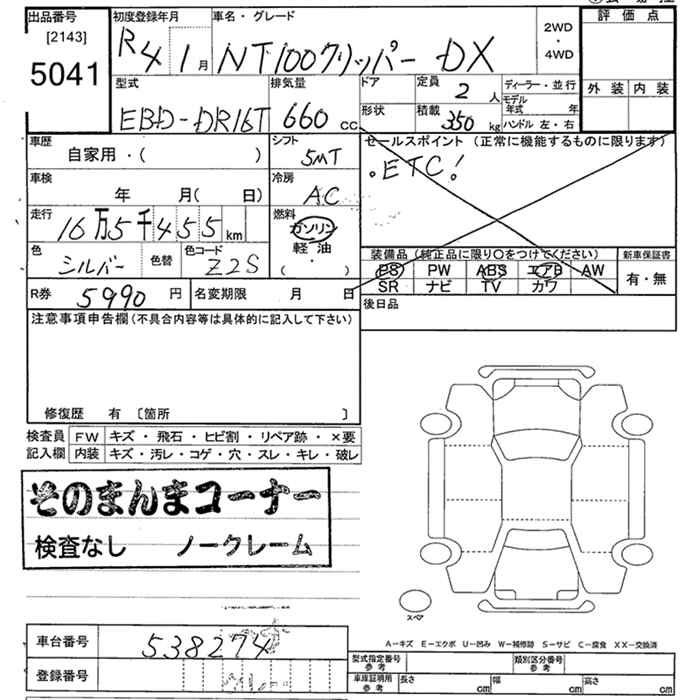 出品番号 初度登録年月 車名・グレード 評価点
[2143]
5041
R4 1月 NT100クリッパー DX 2WD・4WD
外装 内装
型式 排気量 ドア 定員 2人 ディーラー・並行
EBD-DR16T 660cc 形状 積載 350kg モデル年式 年
ハンドル 左・右
車歴 自家用・( ) シフト 5MT セールスポイント (正常に機能するものに限ります)
・ETC!
車検 年 月( 日) 冷房 AC
走行 16万5千455km 燃料 ガソリン 軽・油 ( )
色 シルバー 色替 色コード Z2S 装備品 (純正品に限り○をつけてください) 新車保証書
PS PW ABS エアB AW 有・無
SR ナビ TV カワ
R券 5990円 名変期限 月 日
後日品
注意事項申告欄 (不具合内容等は具体的に記入して下さい)
修復歴 有 [箇所 ]
検査員 FW キズ・飛石・ヒビ割・リペア跡・×要
記入欄 内装 キズ・汚レ・コゲ・穴・スレ・キレ・破レ
そのまんまコーナー
検査なし ノークレーム
スペア
A−キズ E−エクボ U−凹み W−補修跡 S−サビ C−腐食 XX−交換済
車台番号 538274
型式指定番号 参考 類別区分番号 参考
登録番号
車庫証明用 参考 長さ cm 幅 cm 高さ cm